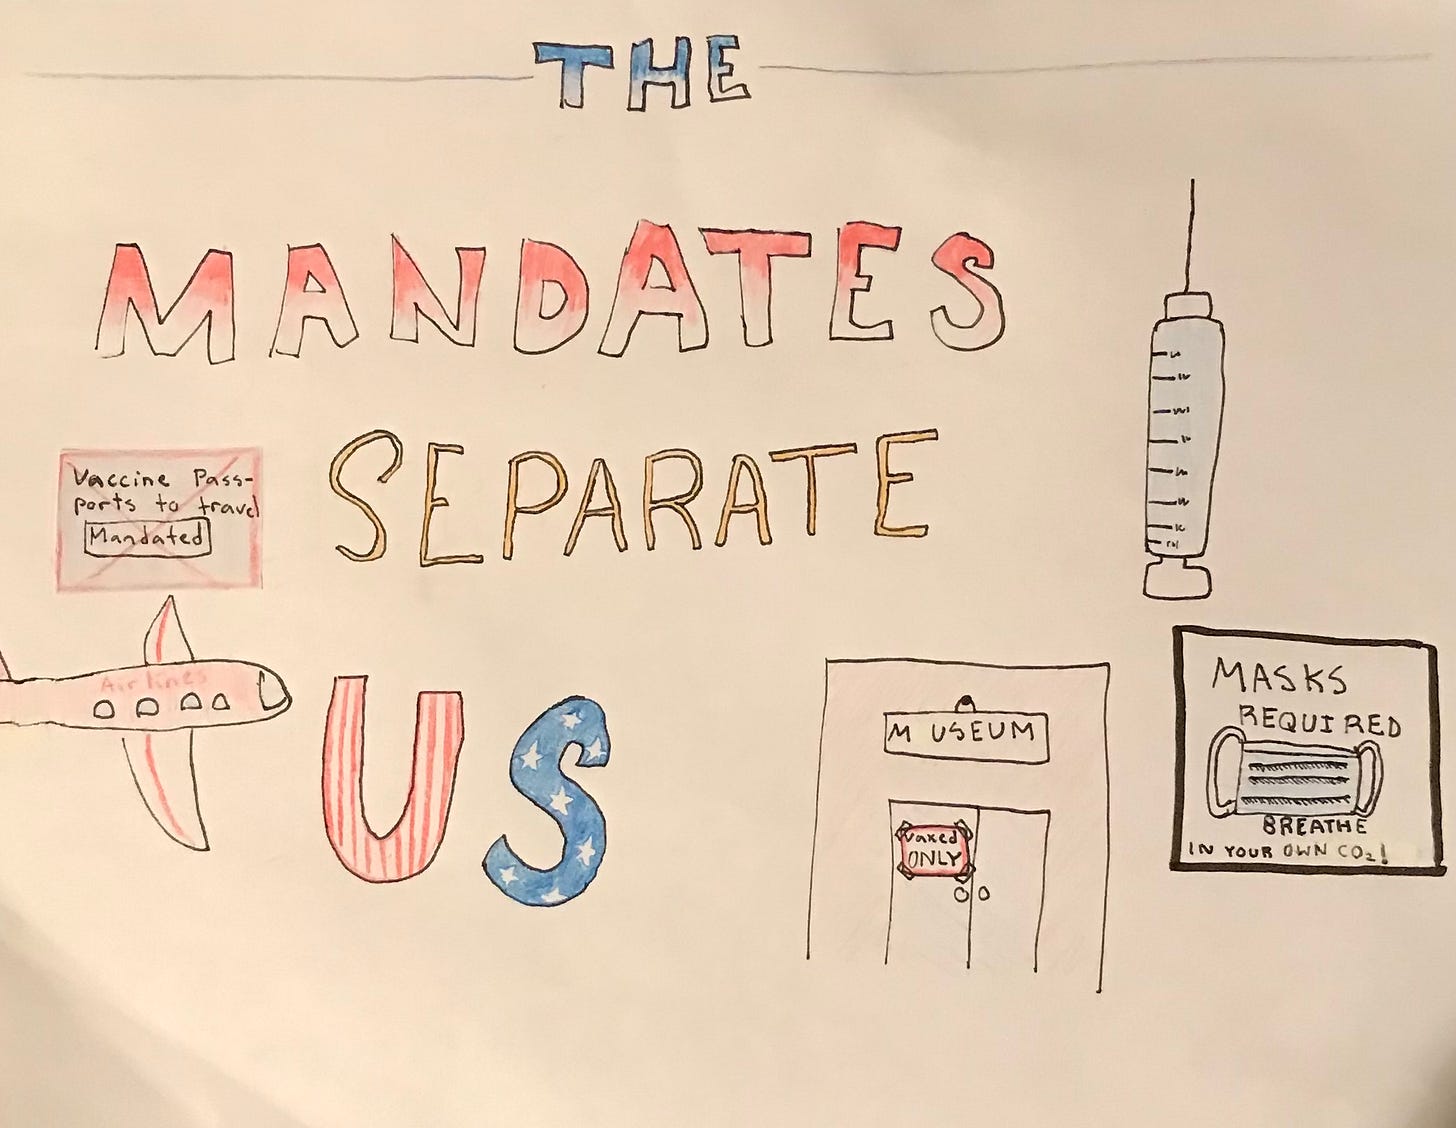 THE
MANDATES
SEPARATE
US
Vaccine Pass-
ports to travel
Mandated
Airlines
MUSEUM
Vaxed
ONLY
MASKS
REQUIRED
BREATHE
IN YOUR OWN CO₂!